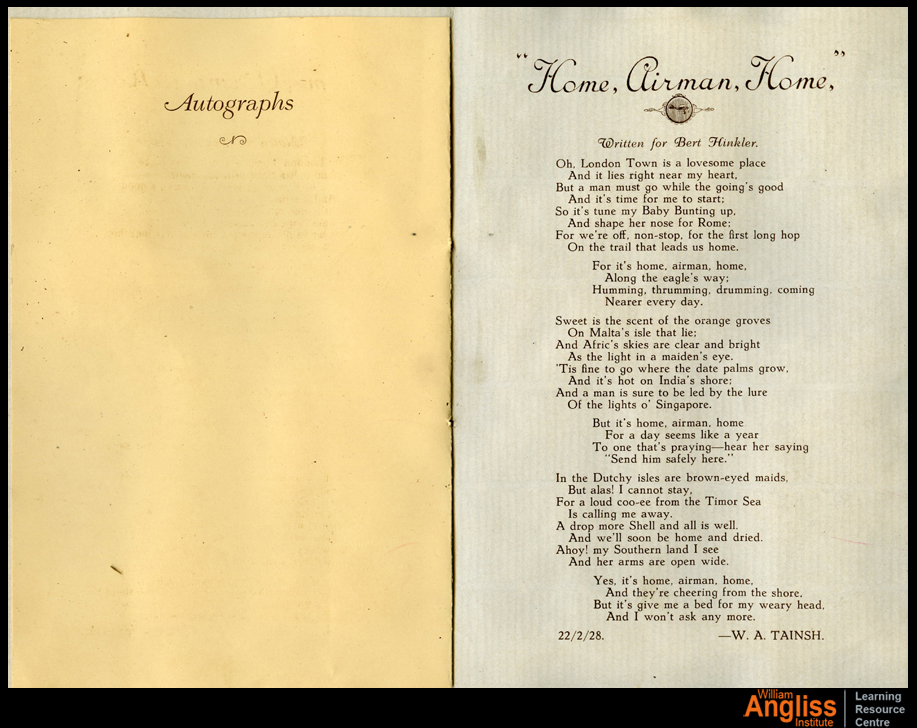 Autographs
"Home, Airman, Home,"
Written for Bert Hinkler.
Oh, London Town is a lovesome place
And it lies right near my heart,
But a man must go while the going's good
And it's time for me to start;
So it's tune my Baby Bunting up,
And shape her nose for Rome;
For we're off, non-stop, for the first long hop
On the trail that leads us home.
For it's home, airman, home,
Along the eagle's way;
Humming, thrumming, drumming, coming
Nearer every day.
Sweet is the scent of the orange groves
On Malta's isle that lie;
And Afric's skies are clear and bright
As the light in a maiden's eye.
'Tis fine to go where the date palms grow,
And it's hot on India's shore;
And a man is sure to be led by the lure
Of the lights o' Singapore.
But it's home, airman, home
For a day seems like a year
To one that's praying—hear her saying
"Send him safely here."
In the Dutchy isles are brown-eyed maids,
But alas! I cannot stay,
For a loud coo-ee from the Timor Sea
Is calling me away.
A drop more Shell and all is well.
And we'll soon be home and dried.
Ahoy! my Southern land I see
And her arms are open wide.
Yes, it's home, airman, home,
And they're cheering from the shore,
But it's give me a bed for my weary head,
And I won't ask any more.
22/2/28. —W. A. TAINSH.
William Angliss Institute
Learning Resource Centre